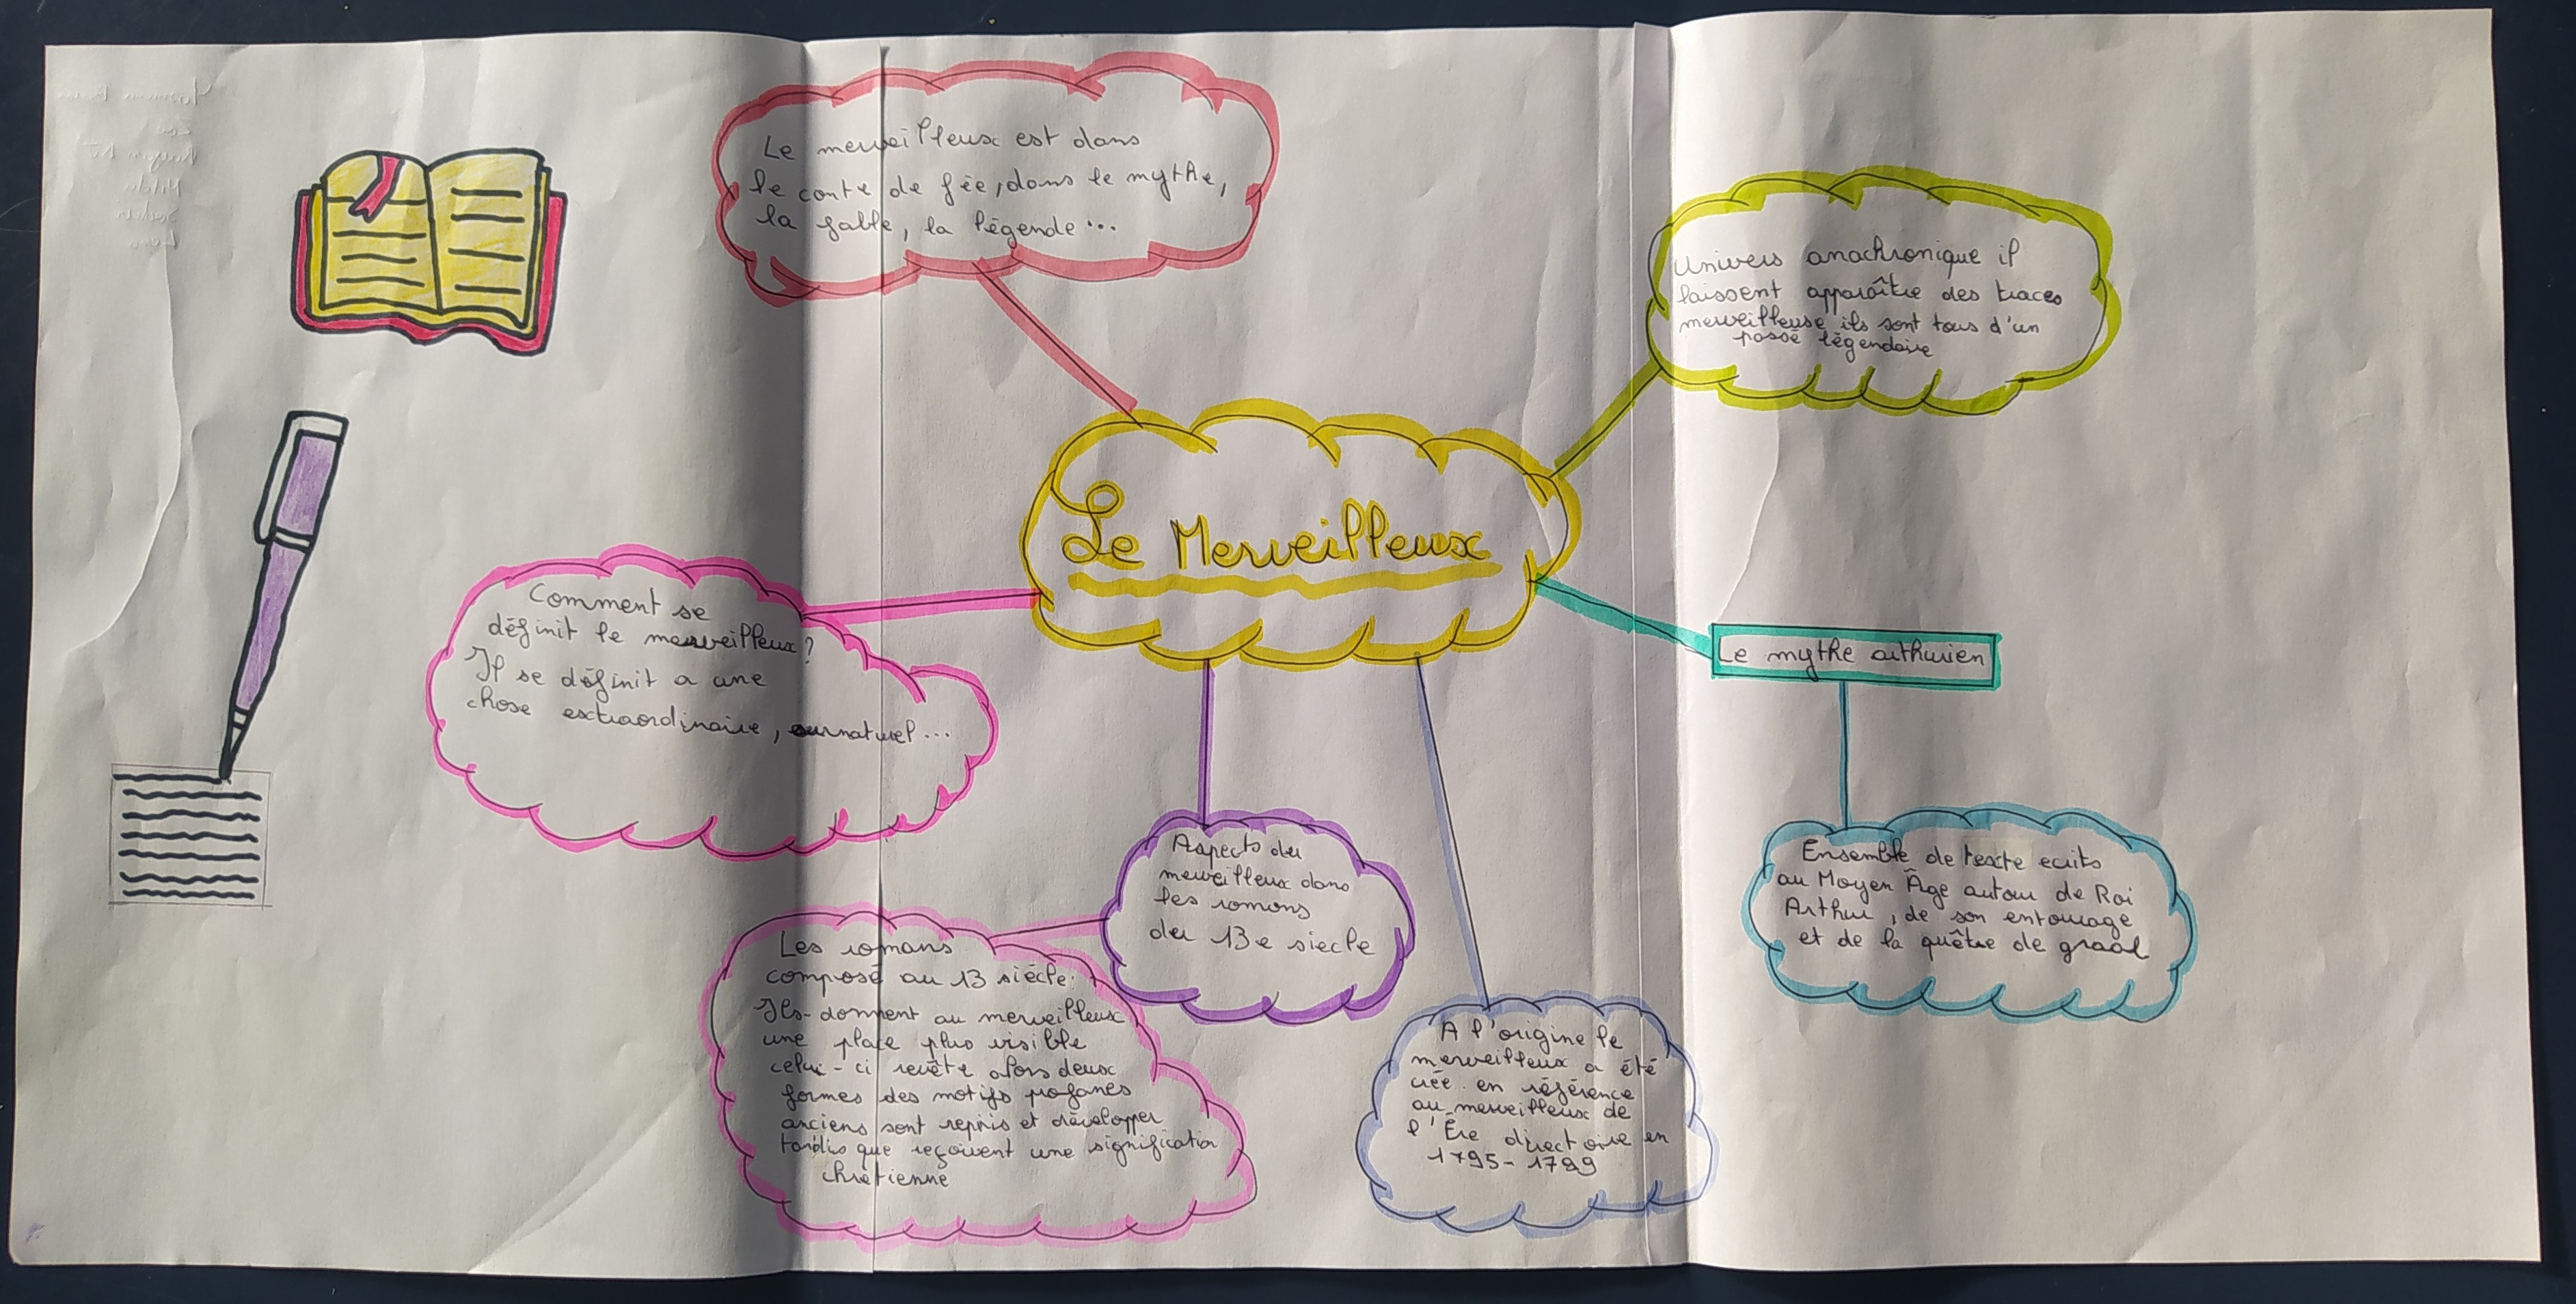 Le merveilleux est dans
le conte de fée, dans le mythe,
la fable, la légende...
Univers anachronique il
laissent apparaître des traces
merveilleuse ils sont tous d'un
passé légendaire
Le Merveilleux
Comment se
définit le merveilleux?
Il se définit a une
chose extraordinaire, surnaturel...
Le mythe arthurien
Aspects du
merveilleux dans
les romans
du 13e siecle
Ensemble de texte ecrits
au Moyen Âge autour de Roi
Arthur, de son entourage
et de la quête de graal
Les romans
composé au 13 siécle:
Ils donnent au merveilleux
une place plus visible
celui-ci revête alors deux
formes des motifs profanes
anciens sont repris et développer
tandis que reçoivent une signification
chretienne
A l'origine le
merveilleux a été
créé en référence
au merveilleux de
l'Ere directoire en
1795-1799